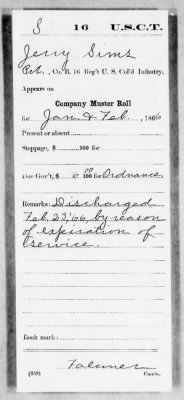 S 16 U.S.C.T.
Jerry Sims
Pvt., Co. B, 16 Reg't U. S. Col'd Infantry.
Appears on
Company Muster Roll
for Jan. & Feb., 1866
Present or absent
Stoppage, $ 100 for
Due Gov't, $ 6 00/100 for Ordnance
Remarks: Discharged
Feb. 23, '66, by reason
of expiration of
service.
Book mark:
(358) Copyist.